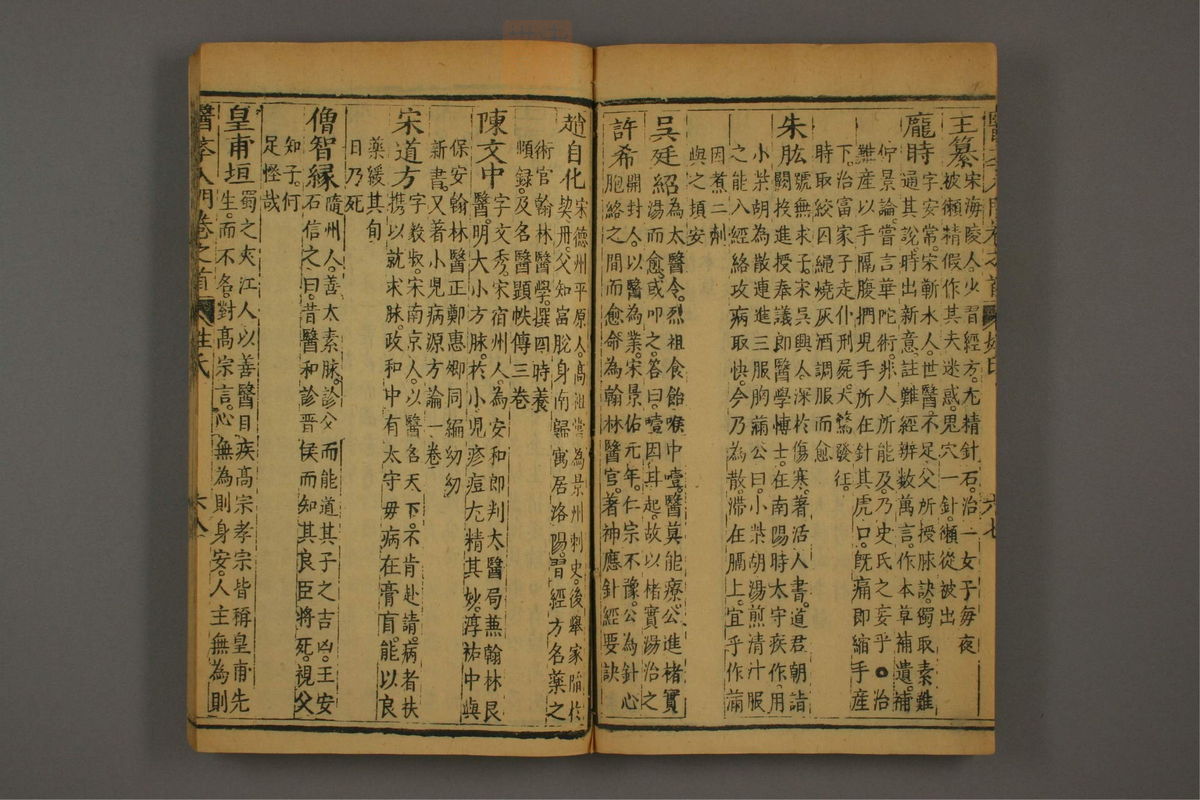 王纂宋海陵人少習經方尤精針石治一女子每夜
被獺精假作其夫迷惑鬼穴一針獺從被出
龐時字安常宋蘄水人世醫不足父所授脉訣獨取素難
通其說時出新意註難經辨數萬言作本草補遺補
仲景論嘗言華陀術非人所能及乃史氏之妄乎○治
難產以手隔腹捫兒手所在針其虎口既痛即縮手產
下治富家子走仆刑屍大驚發狂
時取絞囚繩燒灰酒調服而愈
朱肱號無求子宋吳興人深於傷寒著活人書道君朝詣
闕投進授奉議郎醫學博士在南陽時太守疾作用
小柴胡為散連進三服胸滿公曰小柴胡湯煎清汁服
之能入經絡攻病取快今乃為散滯在膈上宜乎作滿
因煮二劑
與之頓安
吳廷紹為太醫令烈祖食飴喉中噎醫莫能療公進楮實
湯而愈或叩之答曰噎因甘起故以楮實湯治之
許希開封人以醫為業宋景佑元年仁宗不豫公為針心
胞絡之間而愈命為翰林醫官著神應針經要訣
趙自化宋德州平原人高祖嘗為景州刺史後舉家陷於
契丹父知富脫身南歸寓居洛陽習經方名藥之
術官翰林醫學撰四時養
頤錄及名醫顯帙傳三卷
陳文中字文秀宋宿州人為安和郎判太醫局兼翰林良
醫明大小方脉於小兒疹痘尤精其妙淳祐中與
保安翰林醫正鄭惠卿同編幼幼
新書又著小兒病源方論一卷
宋道方字毅叔宋南京人以醫名天下不肯赴請病者扶
携以就求脉政和中有太守毋病在膏肓能以良
藥緩其旬
日乃死
僧智縁隋州人善太素脉診父而能道其子之吉凶王安
石信之曰昔醫和診晋侯而知其良臣將死視父
知子何
足怪哉
皇甫垣蜀之夾江人以善醫目疾高宗孝宗皆稱皇甫先
生而不名對高宗言心無為則身安人主無為則
醫李入門卷之首 姓氏 六八